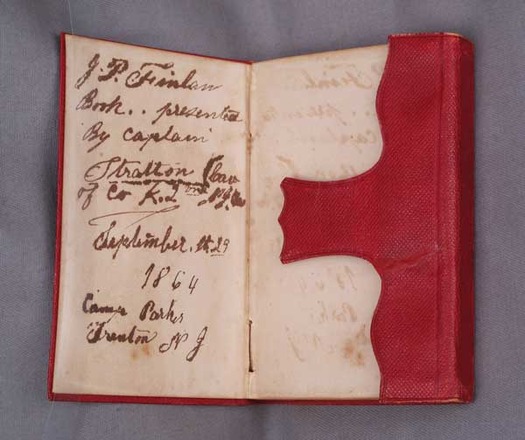 J. P. Finlaw
Book.. presented
By captain
Stratton
of Co K. 2nd
September. th 29
1864
Camp Parks
Trenton N J